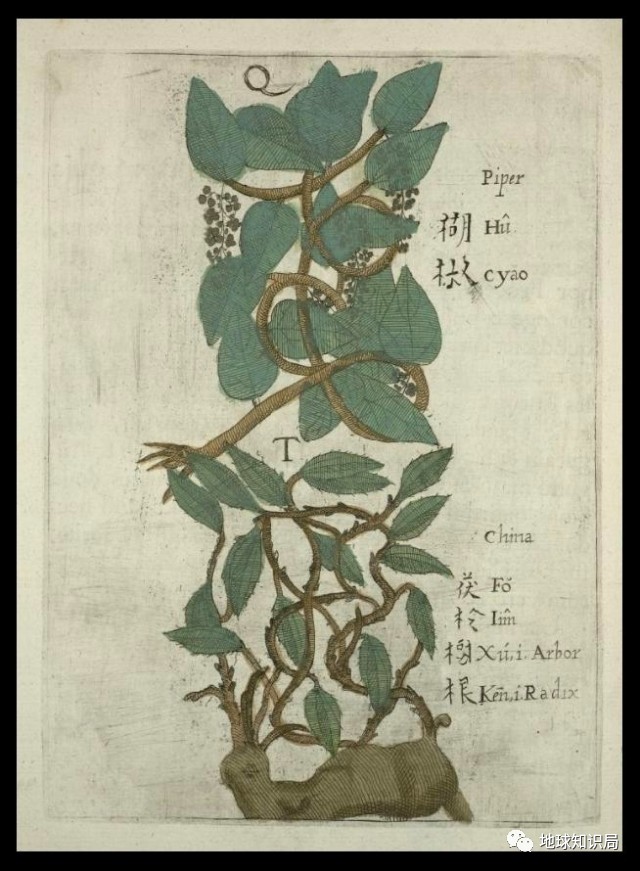 Q
Piper
楜 Hû
椒 Cyao
T
China
茯 Fŏ
柃 Lîm
樹 Xú,i. Arbor
根 Kēn,i.Radix
地球知识局